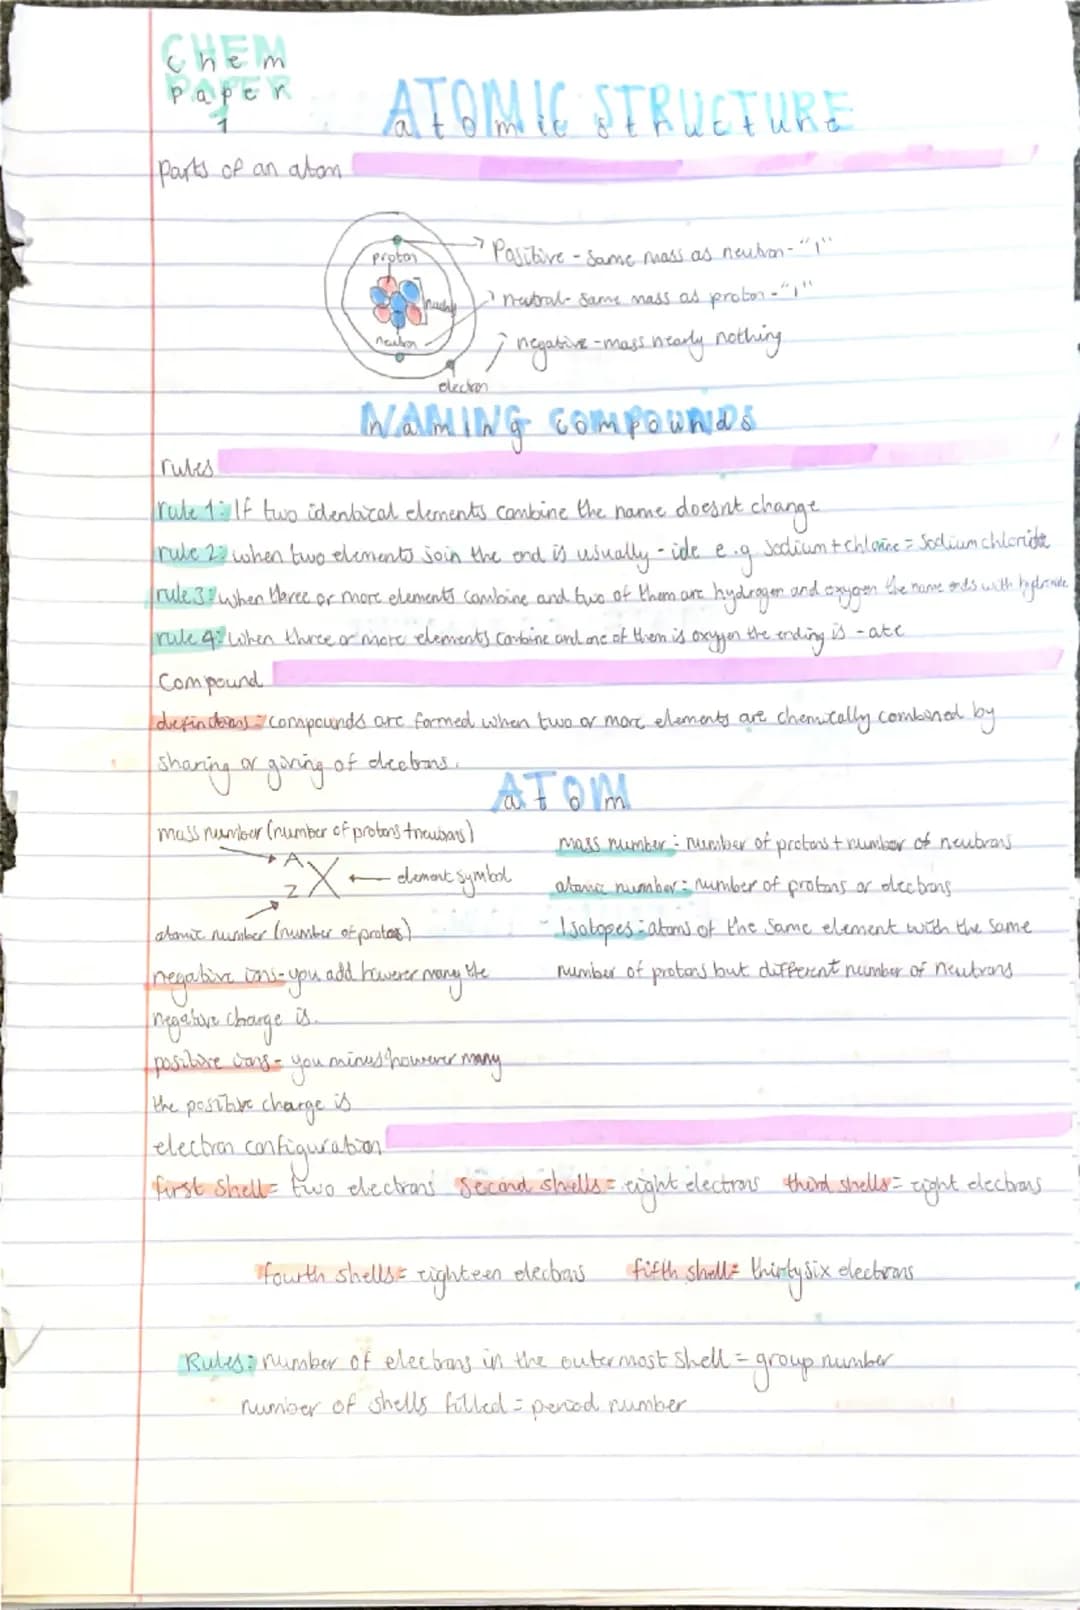 CHEM
PAPER
1
ATOMIC STRUCTURE
parts of an atom
proton
nucleus
neutron
electron
Positive - same mass as neutron - "1"
neutral - same mass as proton - "1"
negative - mass nearly nothing
NAMING COMPOUNDS
rules
rule 1: If two identical elements combine the name doesnt change
rule 2: when two elements join the end is usually - ide e.g sodium + chlorine = sodium chloride
rule 3: when three or more elements combine and two of them are hydrogen and oxygen the name ends with hydroxide
rule 4: when three or more elements combine and one of them is oxygen the ending is -ate
Compound
compounds are formed when two or more elements are chemically combined by
sharing or giving of electrons.
ATOM
mass number (number of protons + neutrons)
A
X ← element symbol
Z
atomic number (number of protons)
negative ions - you add however many the
negative charge is.
positive ions - you minus however many
the positive charge is
mass number = number of protons + number of neutrons
atomic number = number of protons or electrons
- Isotopes = atoms of the same element with the same
number of protons but different number of neutrons
electron configuration
first shell = two electrons second shells = eight electrons third shells = eight electrons
fourth shells = eighteen electrons fifth shell = thirtysix electrons
Rules: number of electrons in the outermost shell = group number
number of shells filled = period number